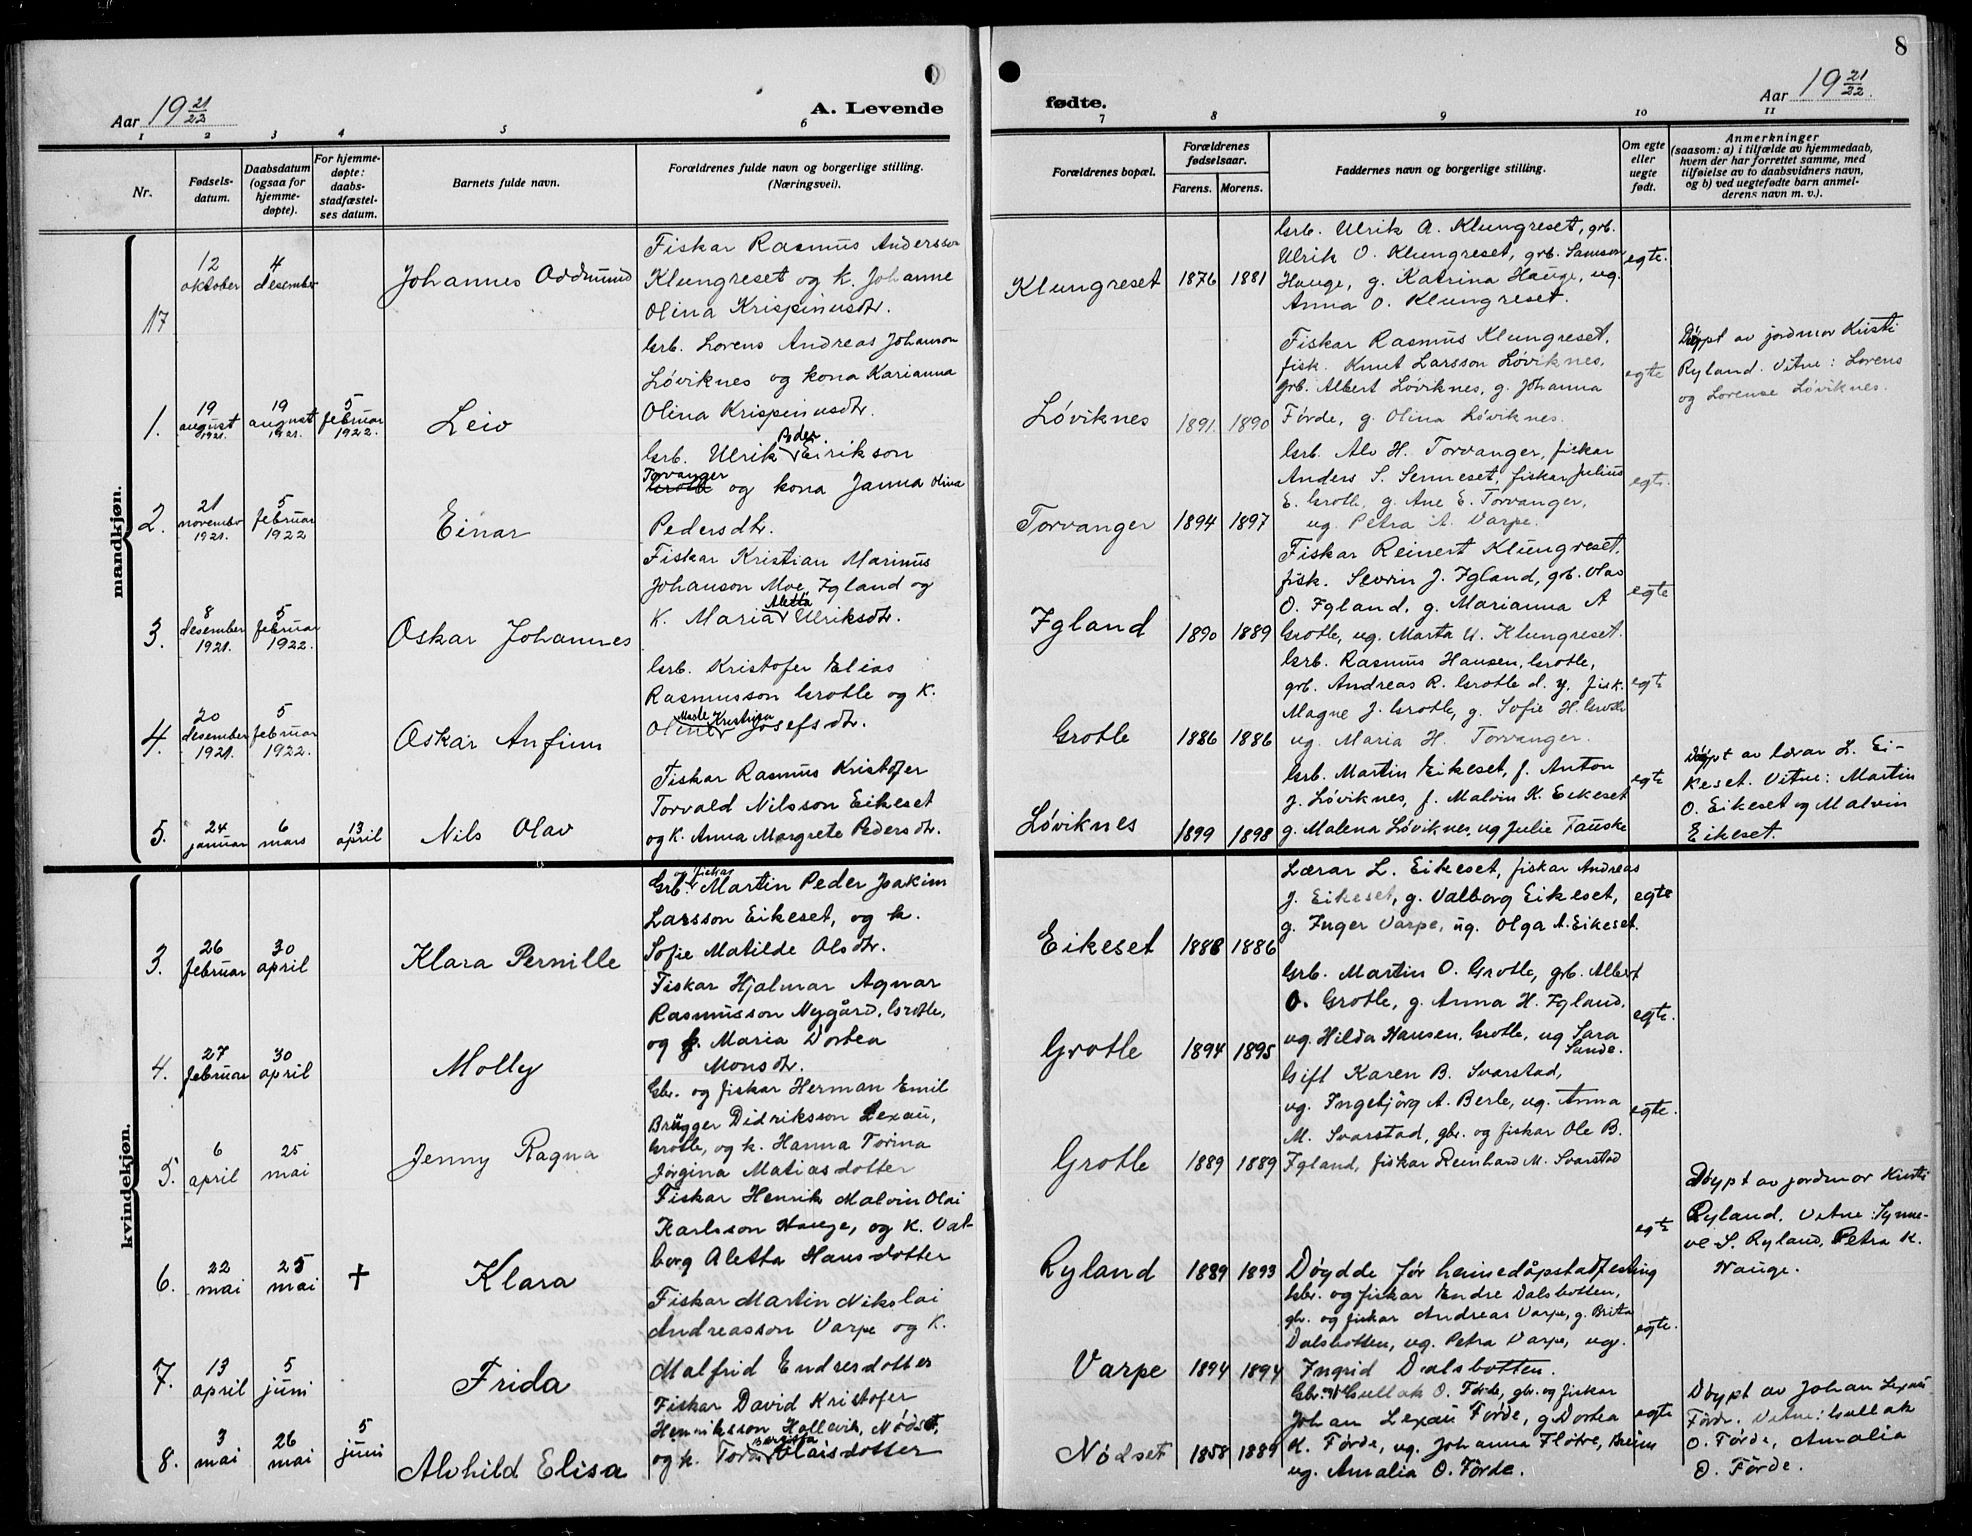 8
Aar 19 21/22
A. Levende
fødte.
Aar 19 21/22.
1 2 3 4 5 6 7 8 9 10 11
Nr.
Fødsels-
datum.
Daabsdatum
(ogsaa for
hjemme-
døpte).
For hjemme-
døpte:
daabs-
stadfæstel-
ses datum.
Barnets fulde navn.
Forældrenes fulde navn og borgerlige stilling.
(Næringsvei).
Forældrenes bopæl.
Forældrenes
fødselsaar.
Farens. Morens.
Faddernes navn og borgerlige stilling.
Om egte
eller
uegte
født.
Anmerkninger
(saasom: a) i tilfælde av hjemmedaab,
hvem der har forrettet samme, med
tilføielse av to daabsvidners navn,
og b) ved uegtefødte barn anmel-
derens navn m. v.).
mandkjøn.
17
12
oktober
4
desember
Johannes Oddmund
Fiskar Rasmus Andersson
Klungreset og k. Johanne
Olina Krispinusdtr.
Klungreset
1876 1881
Grb. Ulrik A. Klungreset, grb.
Ulrik O. Klungreset, grb. Samson
Hauge, g. Katrina Hauge, ug.
Anna O. Klungreset.
egte.
1.
19
august
1921.
19
august
1921.
5
februar
1922.
Leiv
Grb. Lorens Andreas Johanson
Løviknes og kona Karianna
Olina Krispinusdtr.
Løviknes
1891. 1890
Fiskar Rasmus Klungreset,
fisk. Knut Larsson Løviknes,
grb. Albert Løviknes, g. Johanna
Førde, g. Olina Løviknes.
egte
Døypt av jordmor Kristi
Ryland. Vitne: Lorens
og Lorense Løviknes.
2.
21
novembr
1921.
5
februar
1922
Einar
Peder.
Grb. Ulrik Eirikson
Torvanger
Grotle og kona Janna Olina
Pedersdtr.
Torvanger
1894 1897
Grb. Alv H. Torvanger, fiskar
Anders S. Senneset, fiskar Julius
E. Grotle, g. Ane E. Torvanger,
ug. Petra A. Varpe.
egte.
3.
8
desember
1921.
5
februar
1922.
Oskar Johannes
Fiskar Kristian Marinus
Johanson Moe, Igland og
Aletta
K. Maria Ulriksdtr.
Igland
1890 1889
Fiskar Reinert Klungreset,
fisk. Severin J. Igland, grb. Olav
O. Igland, g. Marianna A
Grotle, ug. Marta U. Klungreset.
egte
4.
20
desember
1921.
5
februar
1922.
Oskar Anfinn
Grb. Kristofer Elias
Rasmusson Grotle og K.
Kristina
Josefsdtr.
Grotle
1886 1886
Grb. Rasmus Hansen, Grotle,
grb. Andreas R. Grotle d. y, fisk.
Magne J. Grotle, g. Sofie H. Grotle
ug. Maria H. Torvanger.
egte
5.
24
januar
6
mars
13
april
Nils Olav
Fiskar Rasmus Kristofer
Torvald Nilsson Eikeset
og K. Anna Margrete Pedersdtr.
Løviknes
1899 1898
Grb. Martin Eikeset, f. Anton
J. Løviknes, f. Malvin K. Eikeset
g. Malena Løviknes, ug Julie Fauske
egte
Døypt av lærar L. Ei-
keset. Vitne: Martin
O. Eikeset og Malvin
Eikeset.
kvindekjøn.
3.
26
februar
30
april
Klara Pernille
og fiskar
Grb. Martin Peder Joakim
Larsson Eikeset, og k.
Sofie Matilde Olsdtr.
Eikeset
1888 1886
Lærar L. Eikeset, fiskar Andreas
J. Eikeset, g. Valborg Eikeset,
g. Inger Varpe, ug. Olga A. Eikeset.
egte
4.
27
februar
30
april
Molly
Fiskar Hjalmar Agnar
Rasmusson Nygård, Grotle,
og k. Maria Dortea
Monsdtr.
Grotle
1894 1895
Grb. Martin O. Grotle, grb. Albert
O. Grotle, g. Anna H. Igland,
ug. Hilda Hansen, Grotle, ug Sara
Sande.
egte.
5.
6
april
25
mai
Jenny Ragna
Gbr. og fiskar Herman Emil
Brügger Didriksson Lexau,
Grotle, og k. Hanna Torina
Jørgina Matiasdotter
Grotle
1889 1889
Gift Karen B. Svarstad,
ug. Ingebjørg A. Berle, ug. Anna
M. Svarstad, gbr. og fiskar Ole B.
Igland, fiskar Reinhard M. Svarstad
egte.
6.
22
mai
25
mai
†
Klara
Fiskar Henrik Malvin Olai
Karlsson Hauge, og K. Val-
borg Aletta Hansdotter
Ryland
1889 1893
Døydde før heimedåpstadfesting
egte
Døypt av jordmor Kristi
Ryland. Vitne: Synne-
ve S. Ryland, Petra K.
Hauge.
7.
13
april
5
juni
Frida
Fiskar Martin Nikolai
Andreasson Varpe og K.
Malfrid Endresdotter
Varpe
1894 1894
Gbr. og fiskar Endre Dalsbotten,
gbr. og fiskar Andreas Varpe, g. Brita
Dalsbotten, ug. Petra Varpe, ug.
Ingrid Dalsbotten.
egte.
8.
3
mai
26
mai
5
juni
Alvhild Elisa
Fiskar David Kristofer
Henriksson Hollevik, Nødset,
og k. Tora Olaisdotter
Nødset
1858 1889
Gullak O. Førde, gbr. og fiskar
Johan Lexau Førde, g. Dortea
K. Førde, ug. Johanna Fløtre,
ug. Amalia O. Førde.
egte
Døypt av Johan Lexau
Førde. Vitne: Gullak
O. Førde, Amalia
O. Førde.